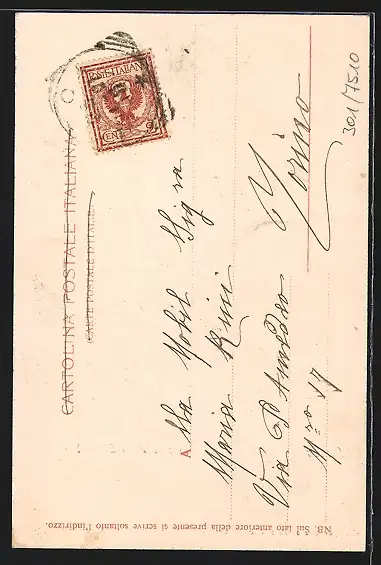 CARTOLINA POSTALE ITALIANA
(CARTE POSTALE D'ITALIE)
POSTE ITALIANE
CENT. 2
A lla Nobil Sig ra
Maria
Via P Amedeo
Nro 17
Torino
NB. Sul lato anteriore della presente si scrive soltanto l'indirizzo.
301/7510